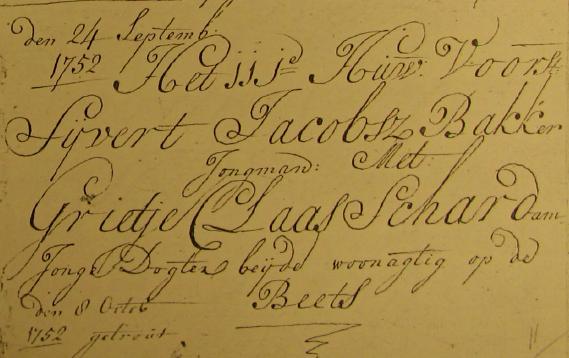 den 24 Septemb:
1752 Het iij.e Huw: Voorst
Sijvert Jacobsz Bakker
Jongman: Met
Grietje Claas Schardam
Jonge Dogter beijde woonagtig op de
Beets
den 8 Octob
1752 getrout